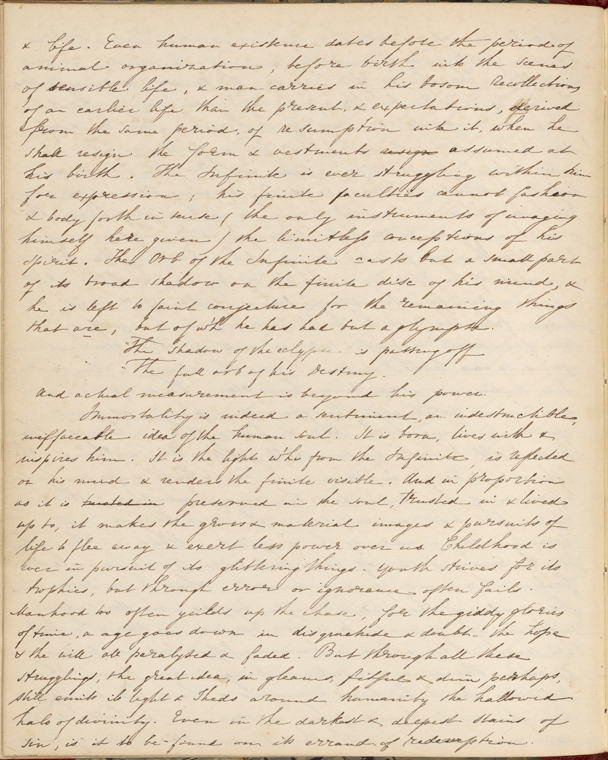 & life. Even human existence dates before the period of
animal organization, before birth into the scenes
of sensible life, & man carries in his bosom recollections
of an earlier life than the present, & expectations, derived
from the same period, of resumption into it, when he
shall resign the form & vestments resign assumed at
his birth. The Infinite is ever struggling within him
for expression; his finite faculties cannot fashion
& body forth in sense (the only instruments of imaging
himself here given) the limitless conceptions of his
spirit. The Orb of the Infinite casts but a small part
of its broad shadow on the finite disc of his mind, &
he is left to faint conjecture for the remaining things
that are, but of wh he has had but a glympse.
"The shadow of the eclypse is passing off
"The full orb of his destiny.
And actual measurement is beyond his power.
Immortality is indeed a sentiment, an indestructible,
ineffaceable idea of the human soul. It is born, lives with &
inspires him. It is the light who from the Infinite, is reflected
on his mind & renders the finite visible. And in proportion
as it is treated in preserved in the soul, trusted in & lived
up to, it makes the gross & material images & pursuits of
life to flee away & exert less power over us. Childhood is
ever in pursuit of its glittering things. Youth strives for its
trophies, but through error or ignorance often fails.
Manhood too often guilds up the chase, for the giddy glories
of time, & age goes down in disquietude & doubt. the hope
& the will all paralysed & faded. But through all these
struggling, the great idea, in gleams, fitful & dim perhaps,
still emits its light & sheds around humanity the hallowed
halo of divinity. Even in the darkest & deepest stains of
sin, is it to be found on its errand of redemption.